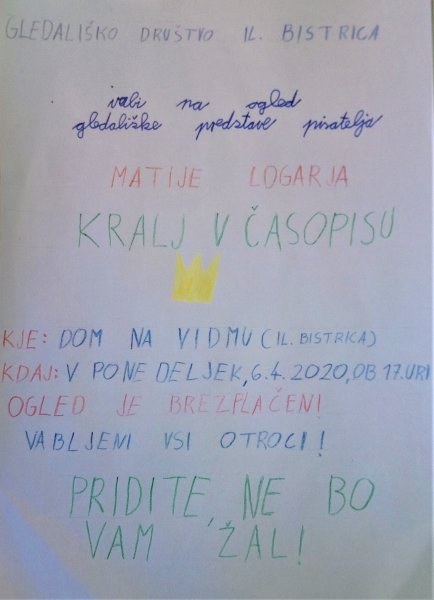 GLEDALIŠKO DRUŠTVO IL. BISTRICA
vabi na ogled
gledališke predstave pisatelja
MATIJE LOGARJA
KRALJ V ČASOPISU
KJE: DOM NA VIDMU (IL. BISTRICA)
KDAJ: V PONEDELJEK, 6.4.2020, OB 17.URI
OGLED JE BREZPLAČEN!
VABLJENI VSI OTROCI!
PRIDITE, NE BO
VAM ŽAL!